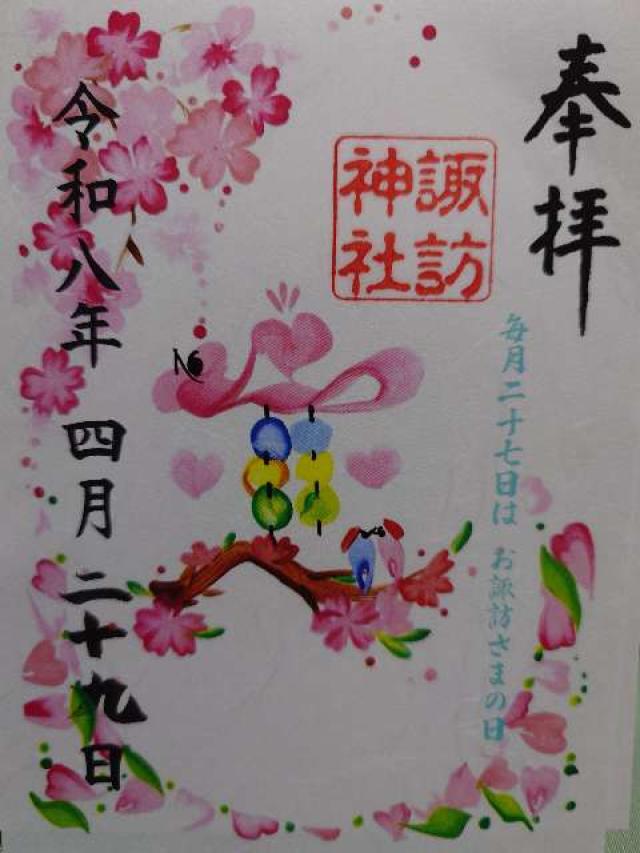 奉拝
諏訪
神社
毎月二十七日は お諏訪さまの日
令和八年 四月 二十九日